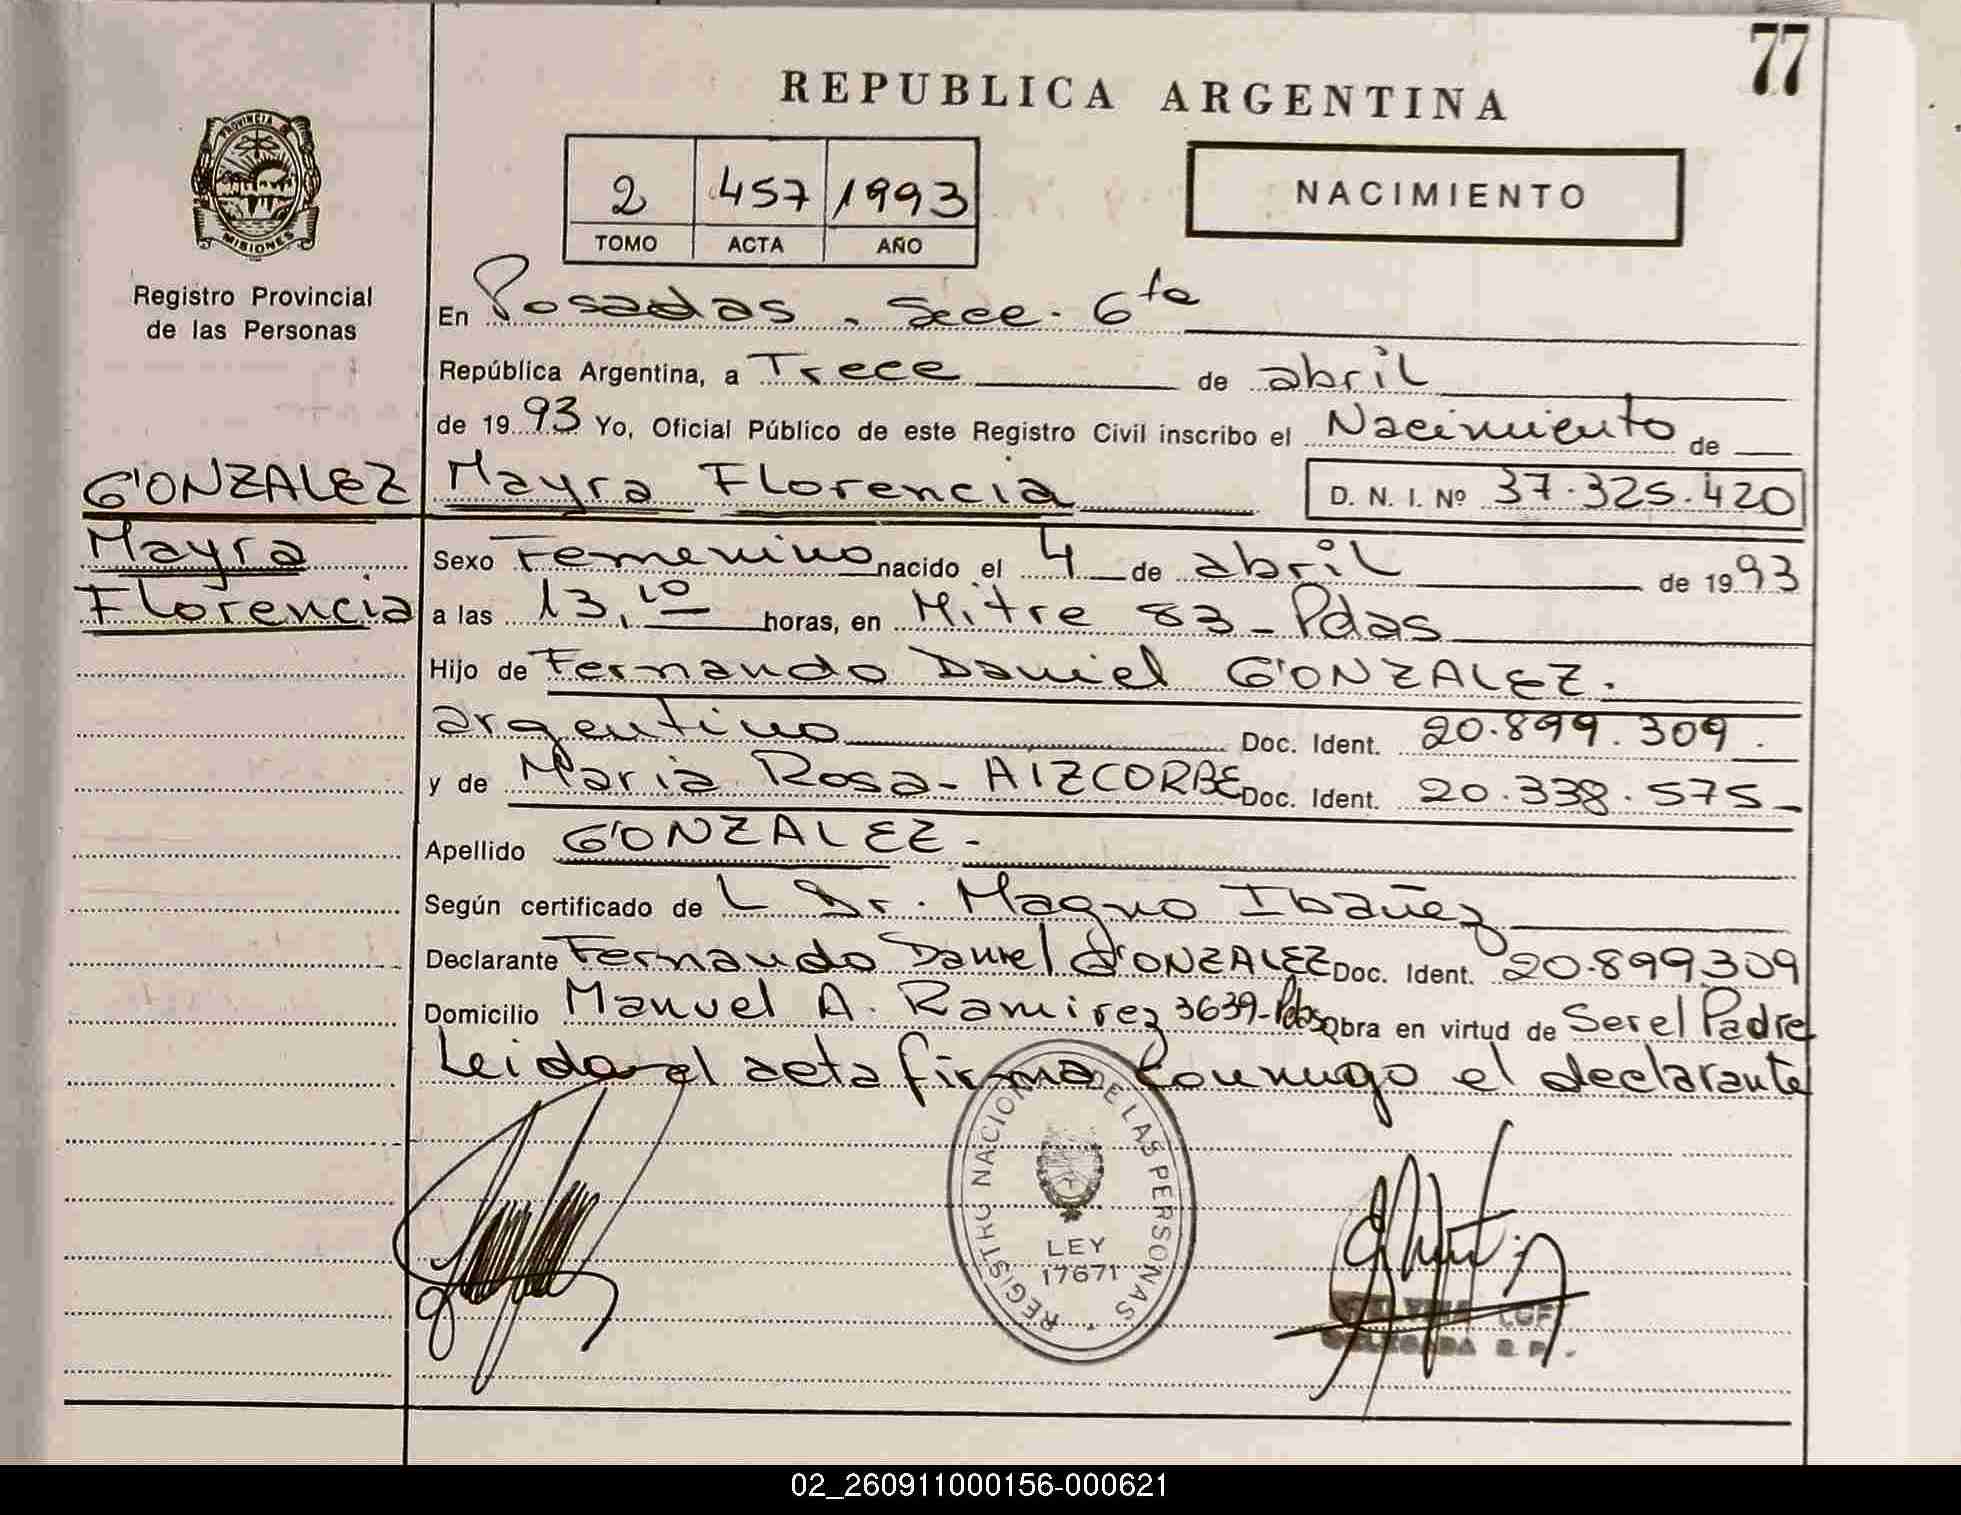 77
REPUBLICA ARGENTINA
PROVINCIA DE
MISIONES
Registro Provincial
de las Personas
2 457 1993
TOMO ACTA AÑO
NACIMIENTO
En Posadas. Secc. 6ta
República Argentina, a Trece de abril
de 1993 Yo, Oficial Público de este Registro Civil inscribo el Nacimiento de
GONZALEZ Mayra Florencia D. N. I. Nº 37.325.420
Mayra Sexo Femenino nacido el 4 de abril de 1993
Florencia a las 13,10 horas, en Mitre 83 - Pdas
Hijo de Fernando Daniel GONZALEZ.
argentino Doc. Ident. 20.899.309.
y de Maria Rosa - AIZCORBE Doc. Ident. 20.338.575-
Apellido GONZALEZ -
Según certificado de L Dr. Magno Ibañez
Declarante Fernando Daniel GONZALEZ Doc. Ident. 20.899309
Domicilio Manuel A. Ramirez 3639-Pdas Obra en virtud de Ser el Padre
Leida el acta firma conmigo el declarante
REGISTRO NACIONAL DE LAS PERSONAS
LEY
17671
DELEGADA R.P.
02_260911000156-000621